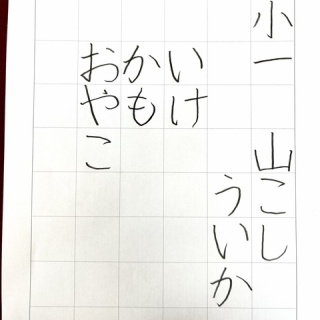 小一 山こし
ういか
いけ
かも
おやこ